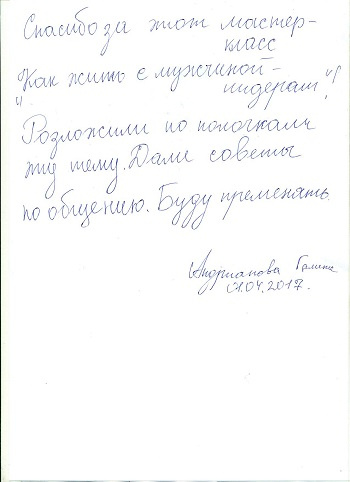 Спасибо за этот мастер-
класс
"Как жить с мужчиной-
лидером"!
Разложили по полочкам
эту тему. Дали советы
по общению. Буду пременять.
Андрианова Галина
01.04.2017.